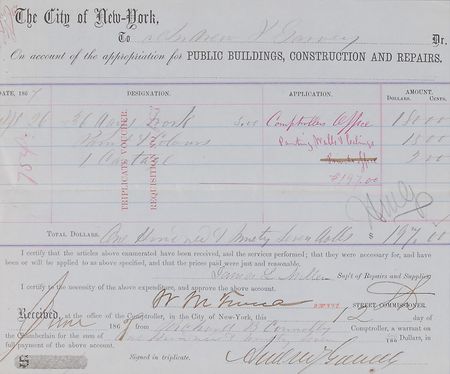 The City of New-York,
To Andrew J. Garvey Dr.
On account of the appropriation for PUBLIC BUILDINGS, CONSTRUCTION AND REPAIRS.
DATE, 1867 DESIGNATION. APPLICATION. AMOUNT.
DOLLARS. CENTS.
26 36 Days Work 5.00 Comptrollers Office 180.00
Colours Painting Walls & Ceilings 15.00
1 Cartage 2.00
$197.00
TRIPLICATE VOUCHER
REQUISITION
TOTAL DOLLARS. One Hundred & Ninety Seven Dolls $ 197.00
I certify that the articles above enumerated have been received, and the services performed; that they were necessary for, and have
been or will be applied to as above specified, and that the prices paid were just and reasonable.
Sup't of Repairs and Supplies.
I certify to the necessity of the above expenditure, and approve the above account.
STREET COMMISSIONER.
Received, at the office of the Comptroller, in the City of New-York, this 12 day of
June 186 from Richard B Connolly Comptroller, a warrant on
the Chamberlain for the sum of One Hundred Ninety Dollars, in
full payment of the above account.
$ Signed in triplicate. Andrew J Garvey